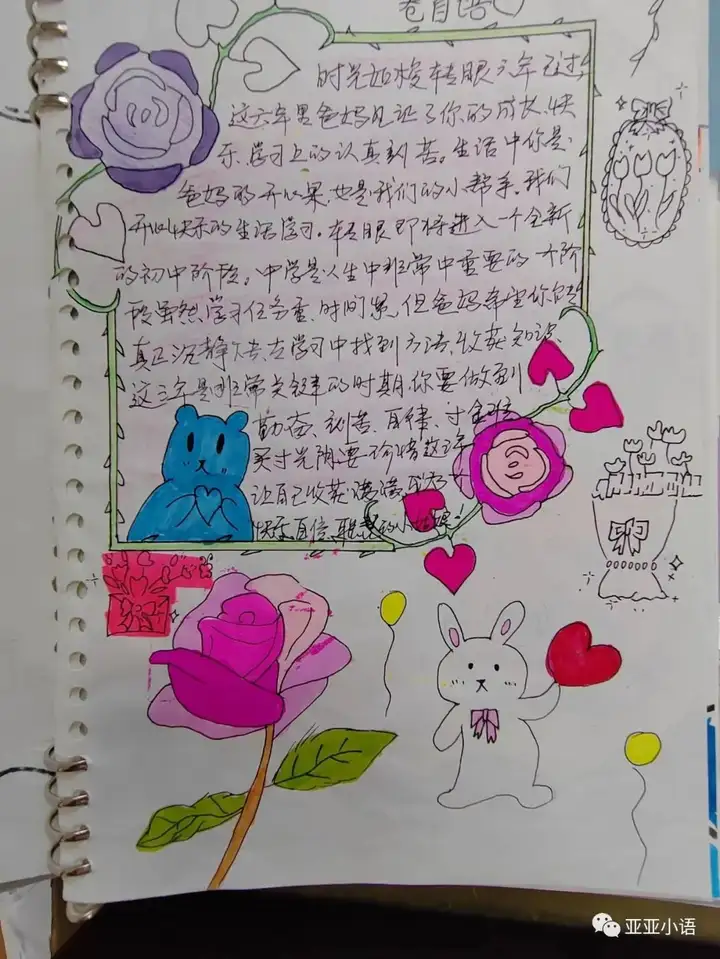 时光如梭转眼六年已过,
这六年里爸妈见证了你的成长、快
乐、学习上的认真刻苦。生活中你是
爸妈的开心果,也是我们的小帮手。我们
开心快乐的生活学习。转眼即将进入一个全新
的初中阶段。中学是人生中非常中重要的一个阶
段虽然学习任务重、时间紧,但爸妈希望你能
真正沉静下去,去学习中找到方法、收获知识、
这三年是非常关键的时期,你要做到
勤奋、刻苦、自律、寸金难
买寸光阴,要珍惜这三年
让自己收获满满,
快乐、自信、聪慧的小
亚亚小语